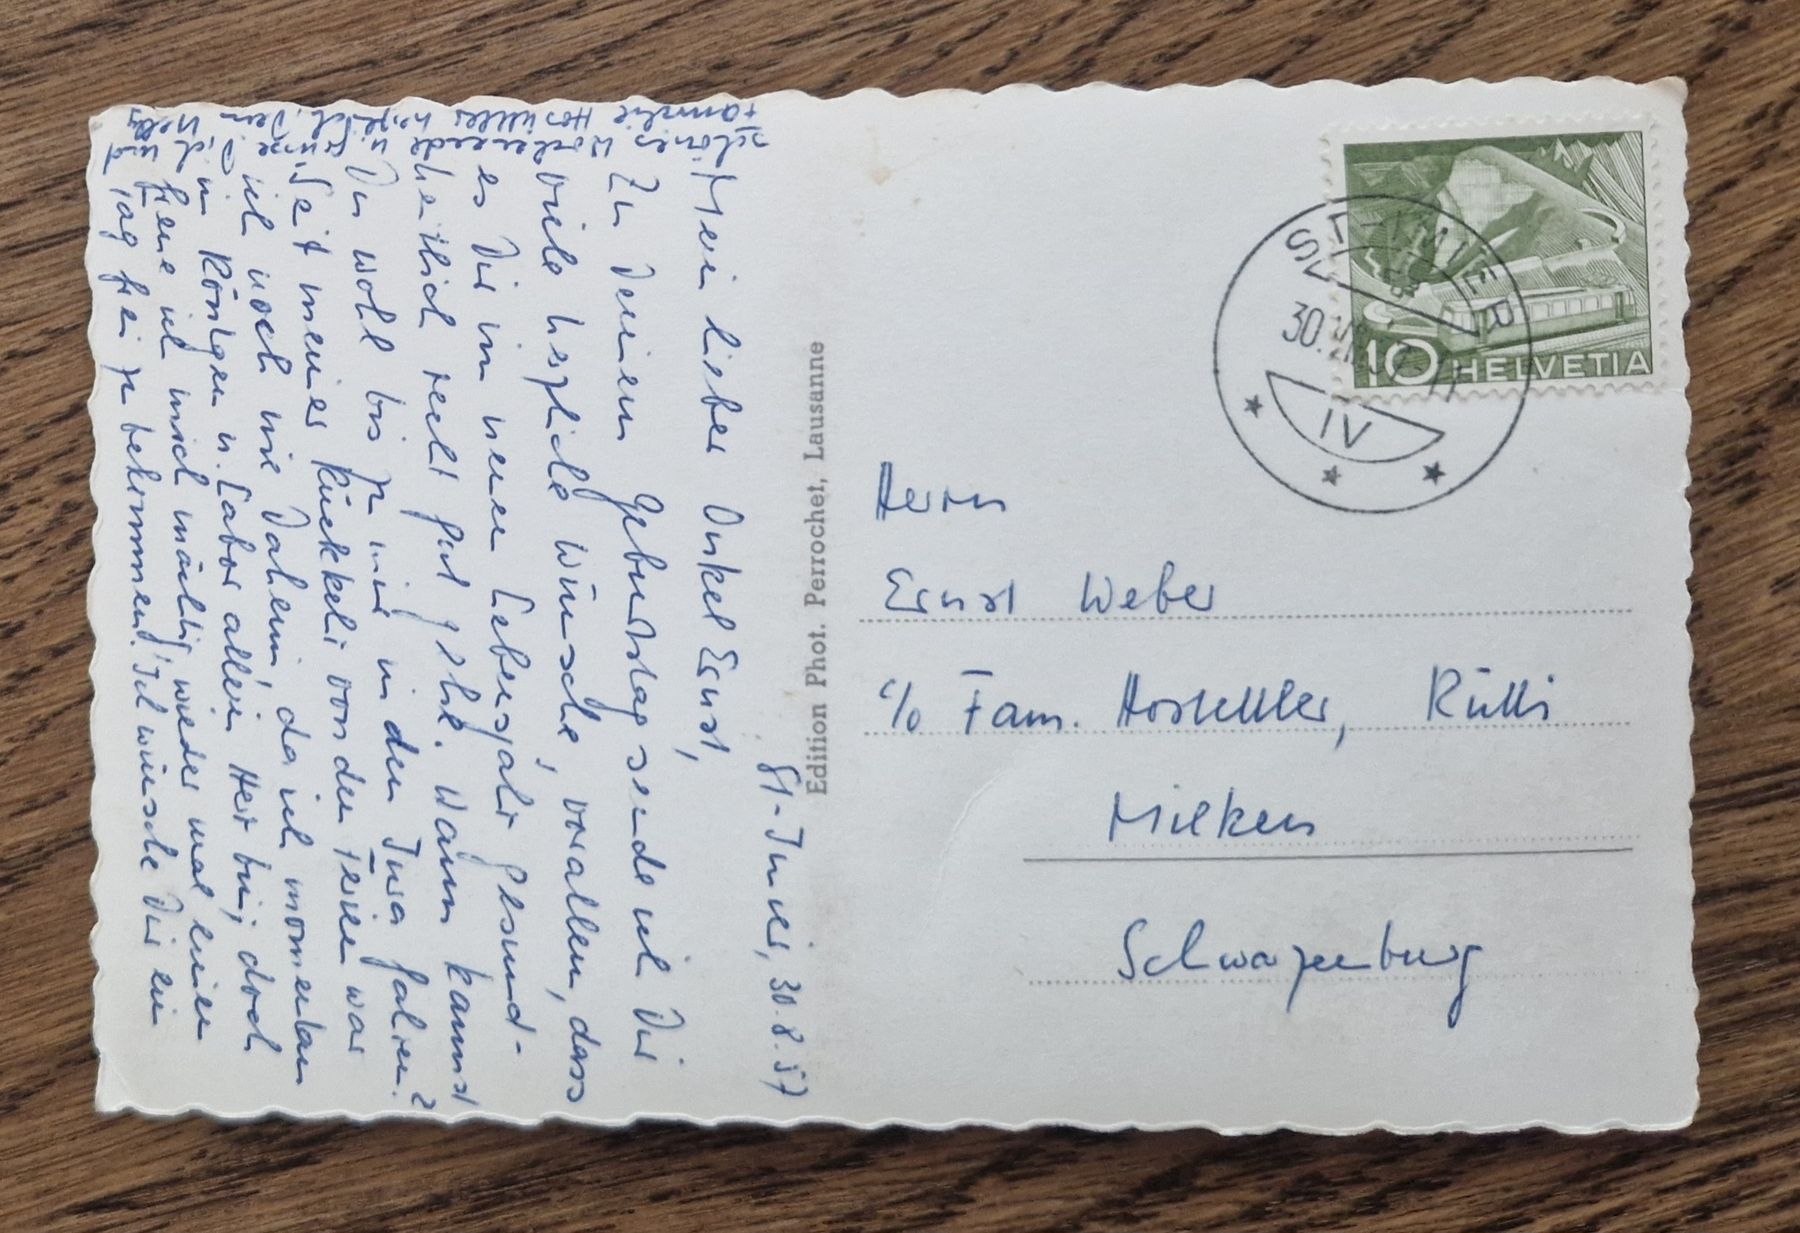 St-Imier, 30.8.57
Mein lieber Onkel Ernst,
Zu Deinem Geburtstag sende ich Dir
viele herzliche Wünsche, vor allem, dass
es Dir im neuen Lebensjahr gesund-
heitlich recht gut geht. Wann kannst
Du wohl bis zu mir in den Jura fahren?
Seit meiner Rückkehr von den Ferien war
ich noch nie daheim, da ich momentan
im Röntgen u. Labor allein hier bin; doch
freue ich mich mächtig wieder mal einen
Tag frei zu bekommen! Ich wünsche Dir ein
schönes Wochenende u.
Familie Hostettler
Edition Phot. Perrochet, Lausanne
ST-IMIER
30.
IV
10 HELVETIA
Herrn
Ernst Weber
c/o Fam. Hostettler, Rütti
Milken
Schwarzenburg